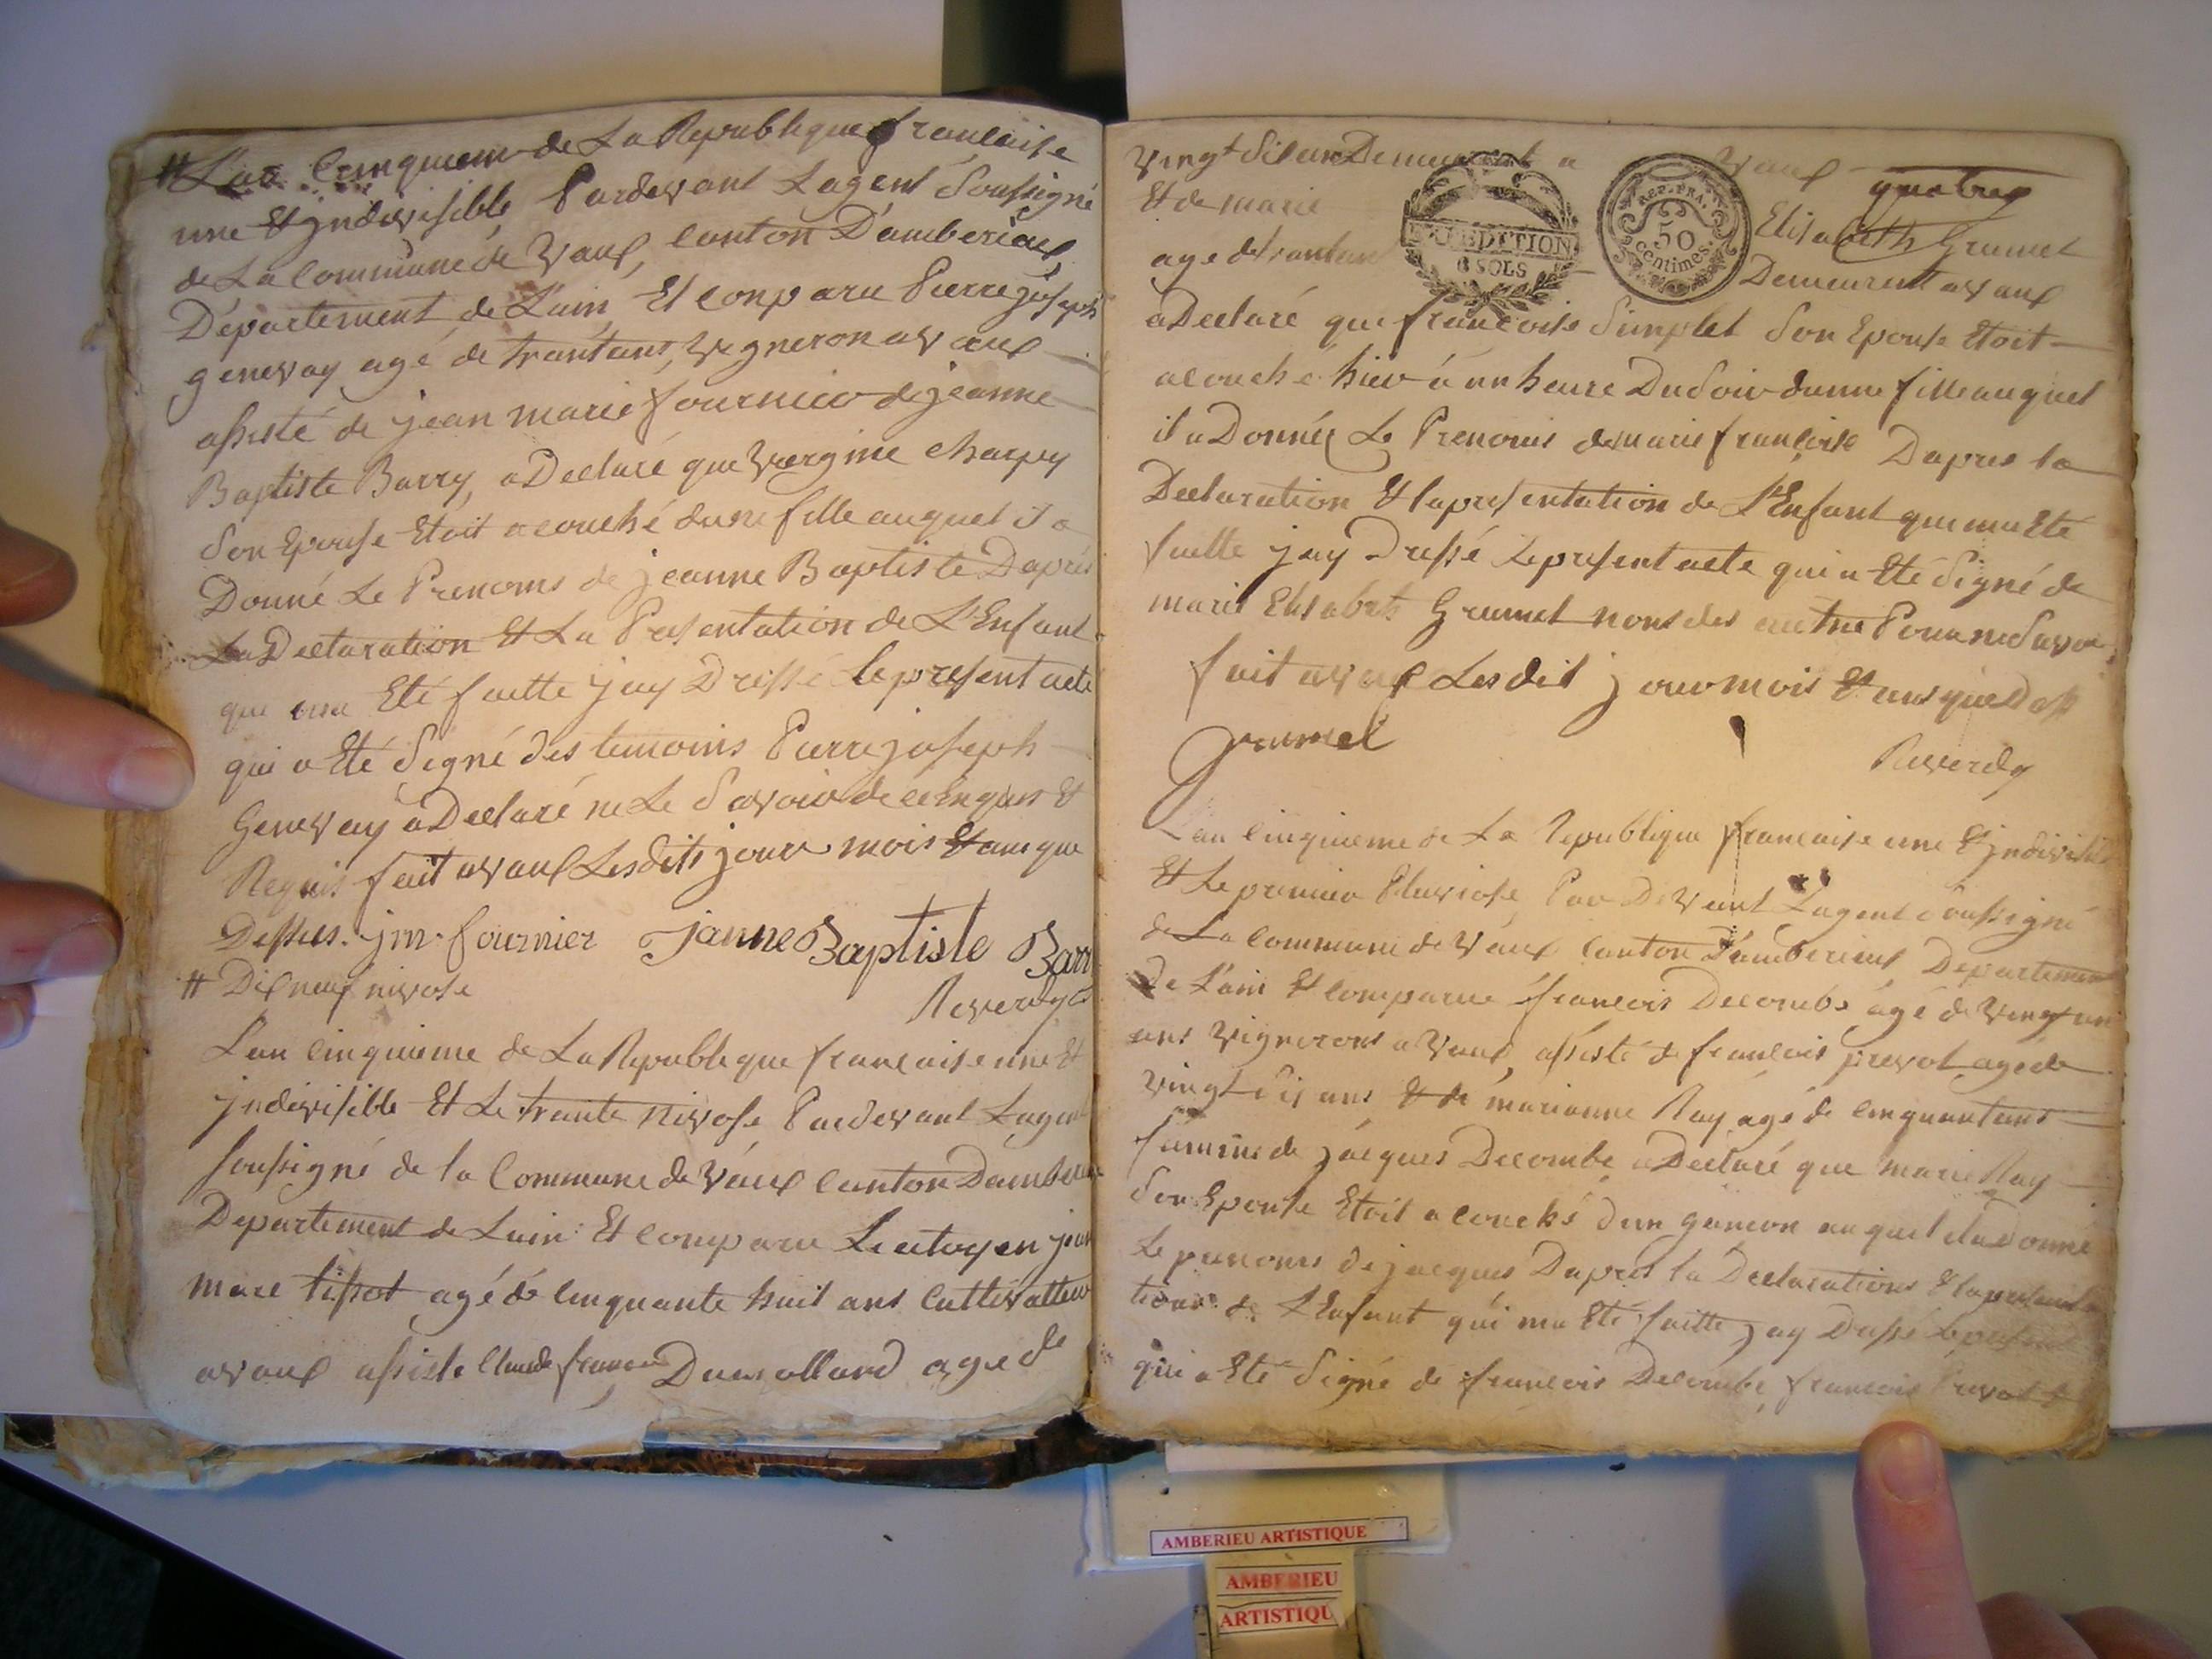 # L'an Cinquieme de La Republique francaise
une Et Jndivisible Pardevant Lagent Soussigné
de La Commune de Vaux, Canton D'amberieux
Département de L'ain Et Comparu Pierre joseph
genevay agé de trantans, vigneron a vaux
assisté de jean marie fournier de jeanne
Baptiste Barry, a Declaré que vergine charpy
Son Epouse Etoit acouché dune fille auquel il a
Donné Le Prenoms de jeanne Baptiste Daprès
La Declaration Et La Presentation de L'Enfant
que ma Eté faitte jay Dressé le present acte
qui a Eté Signé des temoins Pierre joseph
Genevay a Declaré ne Le Savoir de ce Enquis Et
Requis fait a vaux Lesdits jour mois Et an que
Dessus. jm. fournier Janne Baptiste Barr
# Dix neuf nivose
Reverdy
L'an cinquieme de La Republique francaise une Et
jndivisible Et Le trante Nivose Pardevant Lagent
soussigné de la Commune de Vaux Canton Damberieu
Departement de Lain Et Comparu Le citoyen jean
marc tissot agé de Cinquante huit ans Cultivatteur
a vaux assiste Claude francois Dumollard age de
vingt Six an Demeurant a vaux
Et de marie Elisabeth Grumel
age de trantans Demeurent a vaux
REP. FRA.
50
Centimes.
EXPEDITION
6 SOLS
a Declaré que francoise Simplet Son Epouse Etoit
acouché hier à un heure Du Soir dunne fille auquel
il a Donnér Le Prenoms de marie francoise Dapres la
Declaration Et la presentation de L'Enfant que ma Eté
faitte jay Dressé le present acte qui a Eté Signé de
marie Elisabeth Grumel nons des autre Pour ne Savoir
fait a vaux Lesdit jour mois Et ans que Dess
Grumel
Reverdy
L'an Cinquieme de La Republique francaise une Et Jndivisible
Et Le premier Pluviose Par Devant Lagent Soussigné
de La Commune de Vaux Canton D'amberieux Departement
De L'ain Et Comparue francois Decombe agé de vingt un
ans vignerons a vaux, assisté de francois prevot agé de
vingt Six ans Et de marianne Ray agé de Cinquantans
famme de jacques Decombe a Declaré que marie Ray
Son Epouse Etoit acouché dun garcon auquel il a Donné
Le prenoms de jacques Daprès la Declarations Et la presenta
tions de L'Enfant qui ma Eté faitte jay Dressé Le present
qui a Eté Signé de francois Decombe, francois Prevot Et
AMBERIEU ARTISTIQUE
AMBERIEU
ARTISTIQU